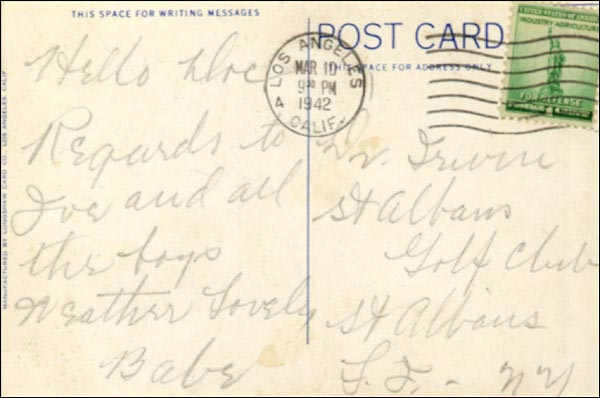 THIS SPACE FOR WRITING MESSAGES
Hello Doc
Regards to
Joe and all
the boys
Weather Lovely
Babe
POST CARD
THIS SPACE FOR ADDRESS ONLY
LOS ANGELES
4 CALIF.
MAR 10
9 30 PM
1942
UNITED STATES OF AMERICA
INDUSTRY AGRICULTURE
FOR DEFENSE
Dr. Irwin
St Albans
Golf Club
St Albans
L. I. - NY
MANUFACTURED BY LONGSHAW CARD CO. LOS ANGELES CALIF.